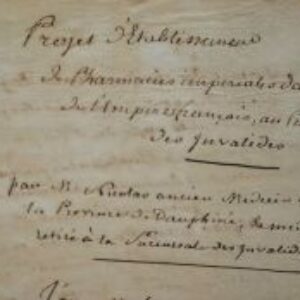 Projet d'Etablissement
de Pharmacies impériales da
de l'Empire français, au
des Invalides
par M. Nicolas ancien Medecin
la Province de Dauphiné,
retiré à la Succursale des Invalid